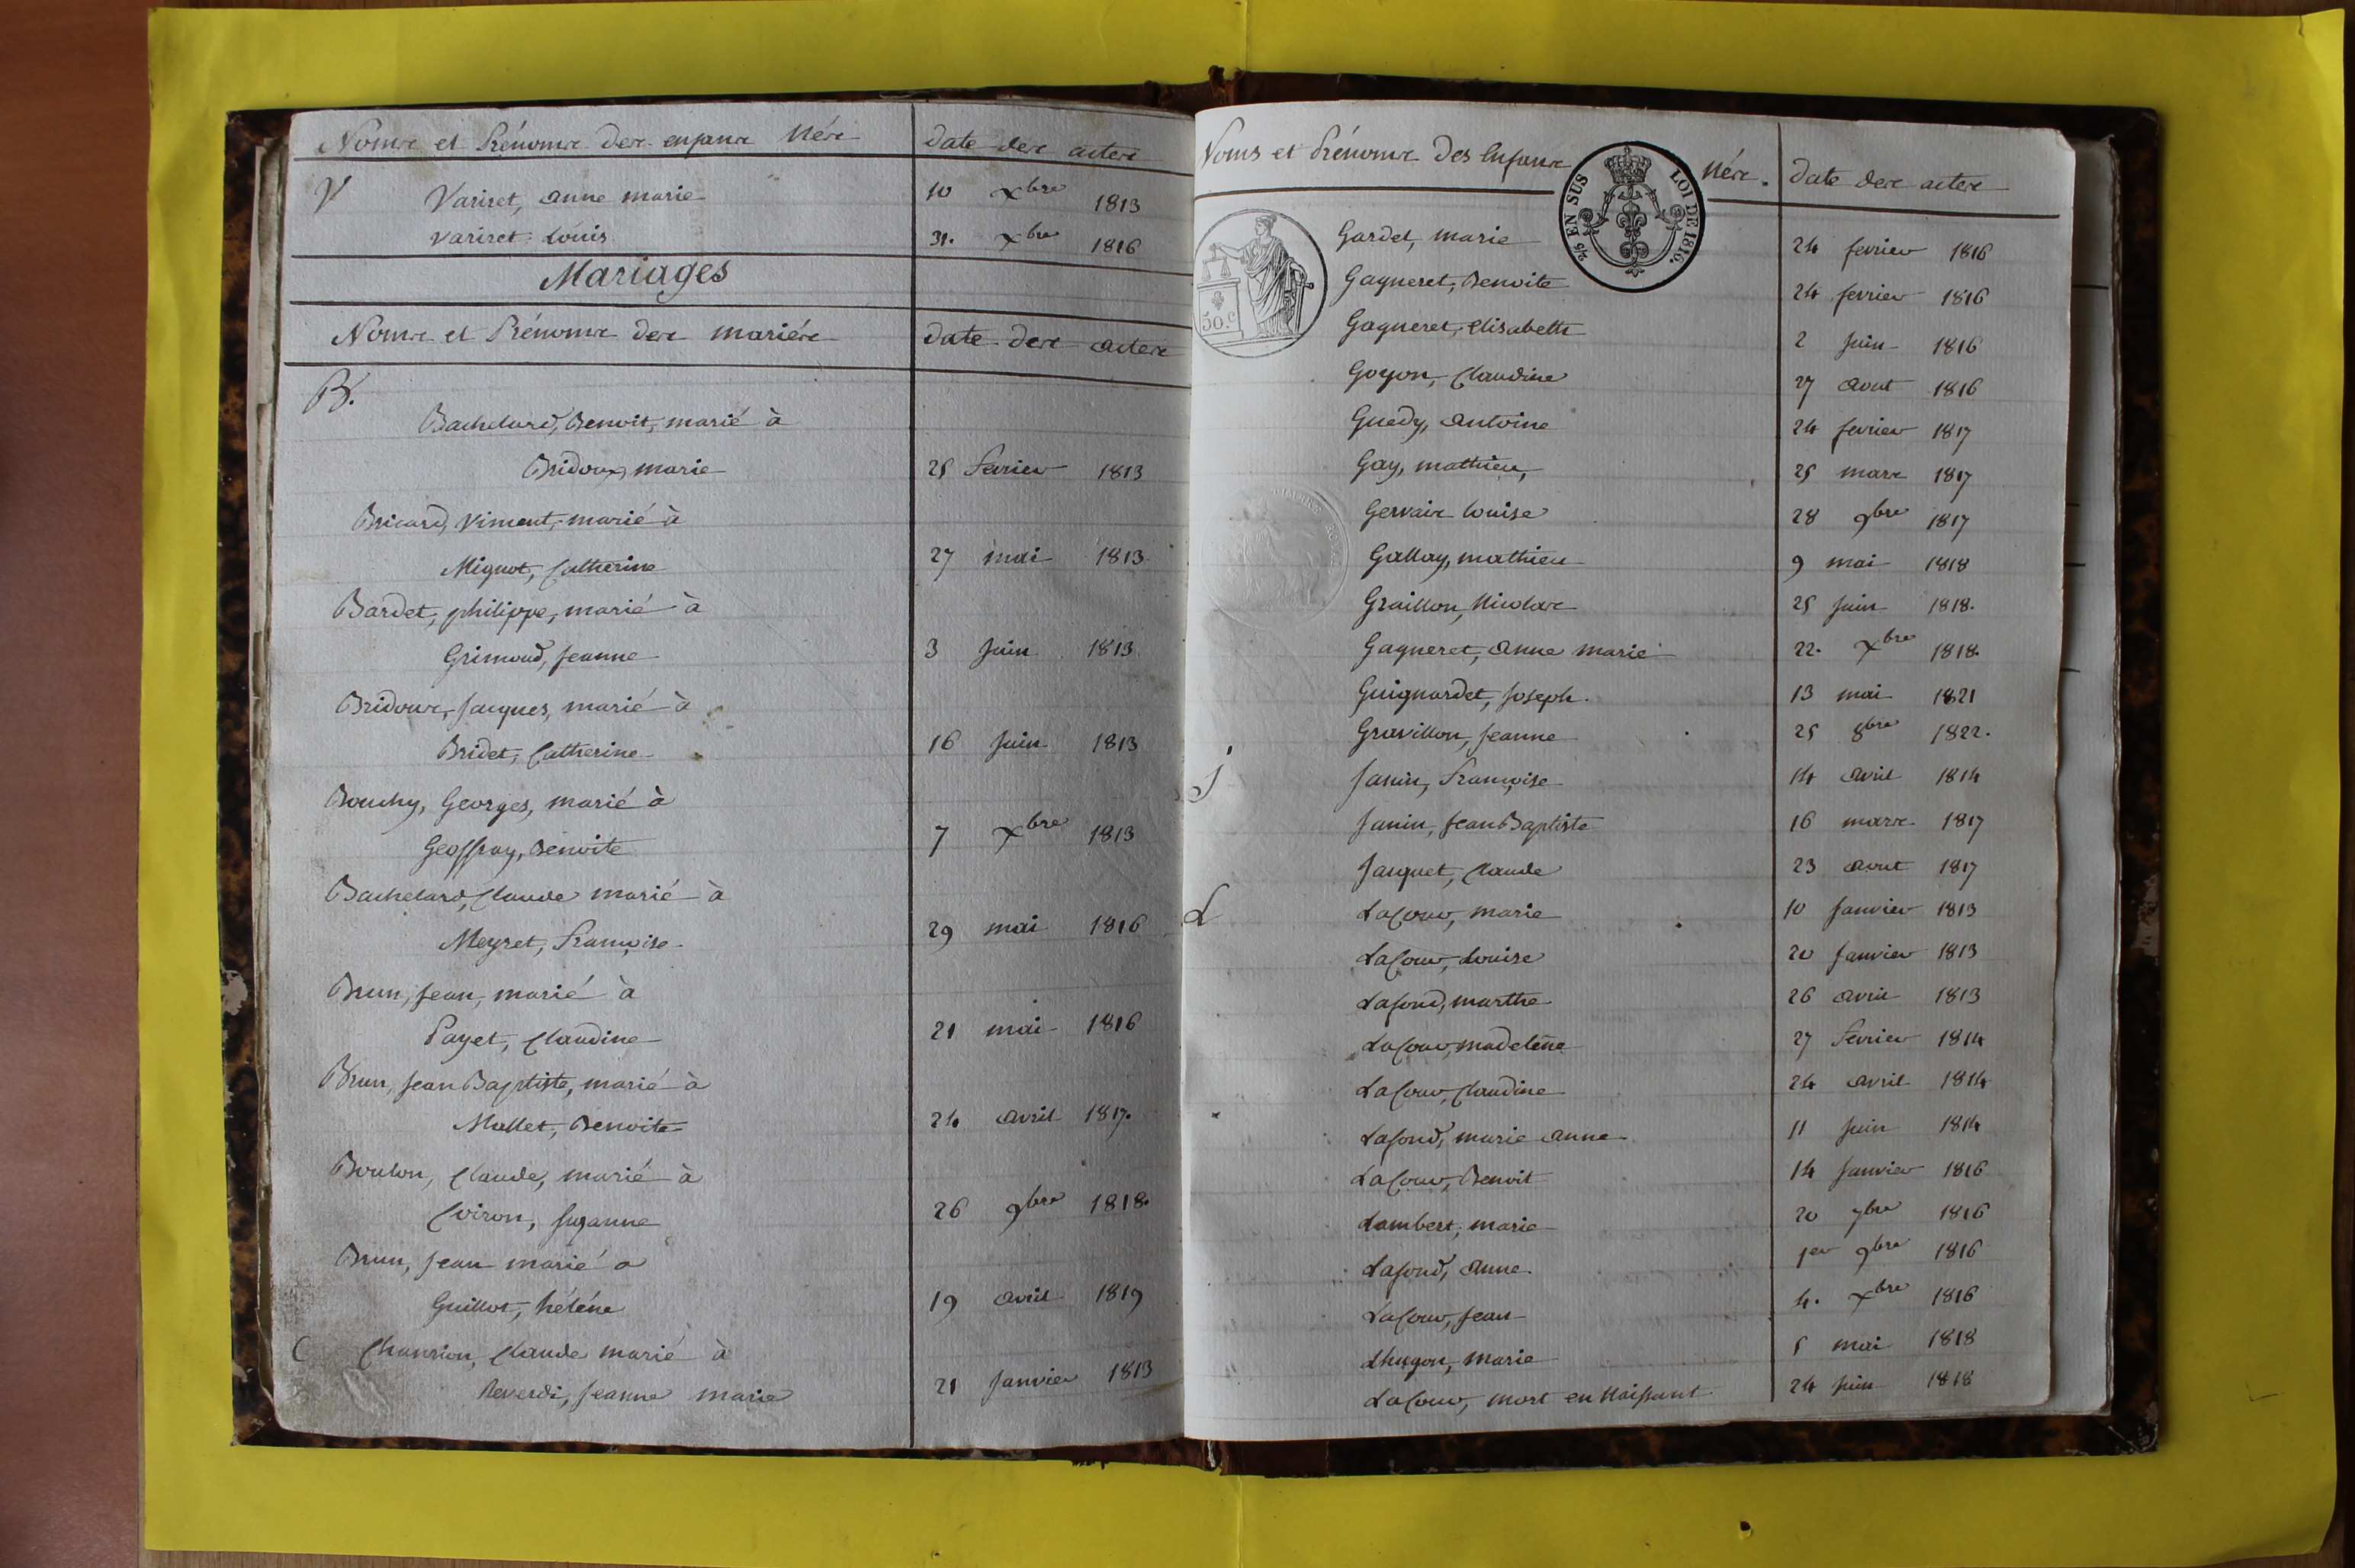 Noms et Prénoms des enfans Nés date des actes
V Variset, anne marie 10 Xbre 1813
Variset Louis 31. Xbre 1816
Mariages
Noms et Prénoms des mariés date des actes
B.
Bachelard, Benoit, marié à
Bridoux, marie 25 fevrier 1813
Bricard, Viment, marié à
Miguot, Catherine 27 mai 1813
Bardet, philippe, marié à
Grimoud, Jeanne 3 Juin 1813
Bridoux, Jacques, marié à
Bridet, Catherine 16 Juin 1813
Bouchy, Georges, marié à
Geoffray, Benoite 7 Xbre 1813
Bachelard, Claude marié à
Meyret, Françoise 29 mai 1816
Brun, Jean, marié à
Payet, Claudine 21 mai 1816
Brun, Jean Baptiste, marié à
Mallet, Benoite 24 avril 1817.
Boulon, Claude, marié à
Coiron, Suzanne 26 9bre 1818.
Brun, Jean marié a
Guillot, hélène 19 avril 1819
C Chanrion, Claude marié à
Reverdi, Jeanne marie 21 Janvier 1813
Noms et Prénoms des Enfans Nés. date des actes
2/6 EN SUS LOI DE 1816.
50.c
Gardet, marie 24 fevrier 1816
Gagneret, Benoite 24 fevrier 1816
Gagneret, Elisabeth 2 Juin 1816
Goyon, Claudine 27 aout 1816
Guedy, antoine 24 fevrier 1817
Gay, mathieu, 25 mars 1817
Gervais Louise 28 9bre 1817
Gallay, mathieu 9 mai 1818
Graillon, Nicolas 25 Juin 1818.
Gagneret, anne marie 22. Xbre 1818.
Guignardet, Joseph. 13 mai 1821
Gravillon, Jeanne 25 8bre 1822.
J Janin, Françoise 14 avril 1814
Janin, Jean Baptiste 16 mars 1817
Jacquet, Claude 23 aout 1817
L LaCour, marie 10 Janvier 1813
LaCour, Louise 20 Janvier 1813
Lafond, marthe 26 avril 1813
LaCour, madeleine 27 Fevrier 1814
LaCour, Claudine 24 avril 1814
Lafond, marie anne 11 Juin 1814
LaCour, Benoit 14 Janvier 1816
Lambert, marie 20 7bre 1816
Lafond, anne. 1er 9bre 1816
LaCour, Jean 4. Xbre 1816
Lhugon, marie 5 mai 1818
LaCour, mort en Naissant 24 Juin 1818